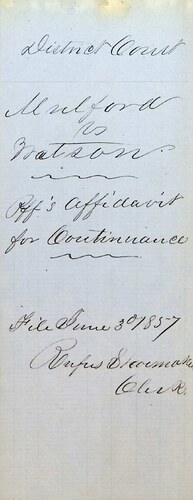 District Court
Mulford
vs
Watson
Plff's Affidavit
for Continuance
File June 3d 1857
Rufus Shoemaker
Clerk